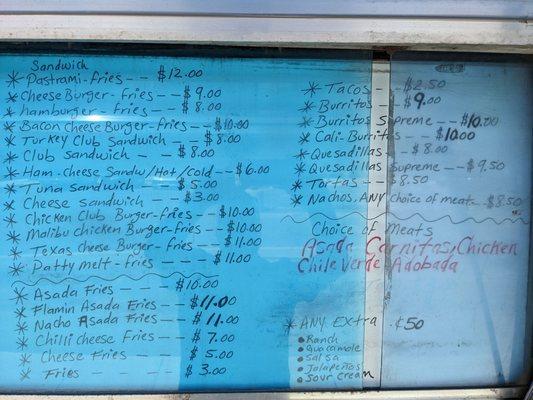 Sandwich
* Pastrami-fries -- $12.00
* Cheese Burger - fries -- $9.00
* hamburger - fries -- $8.00
* Bacon cheese Burger-fries -- $10.00
* Turkey Club Sandwich -- $8.00
* Club sandwich -- $8.00
* Ham-cheese Sandw/Hot/cold -- $6.00
* Tuna sandwich -- $5.00
* Cheese sandwich -- $3.00
* Chicken Club Burger-fries -- $10.00
* Malibu chicken Burger-fries -- $10.00
* Texas cheese Burger-fries -- $11.00
* Patty melt-fries -- $11.00
* Asada Fries -- $10.00
* Flamin Asada Fries -- $11.00
* Nacho Asada Fries -- $11.00
* Chilli cheese Fries -- $7.00
* Cheese Fries -- $5.00
* Fries -- $3.00
* Tacos -- $2.50
* Burritos -- $9.00
* Burritos Supreme -- $10.00
* Cali-Burritos -- $10.00
* Quesadillas -- $8.00
* Quesadillas Supreme -- $9.50
* Tortas -- $8.50
* Nachos, ANY choice of meat -- $8.50
Choice of Meats
Asada, Carnitas, Chicken
Chile Verde, Adobada
* ANY Extra . ¢50
• Ranch
• Guacamole
• Salsa
• Jalapeños
• Sour cream